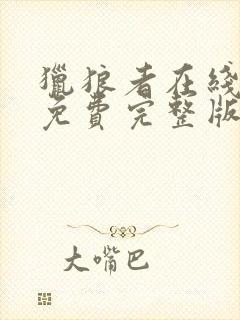 獵狼者在綫
免費完整版
大嘴巴